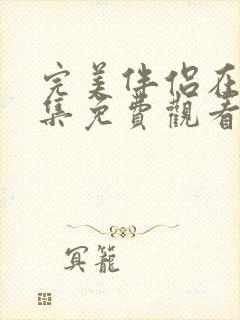 完美伴侶在
集免費觀看
冥籠